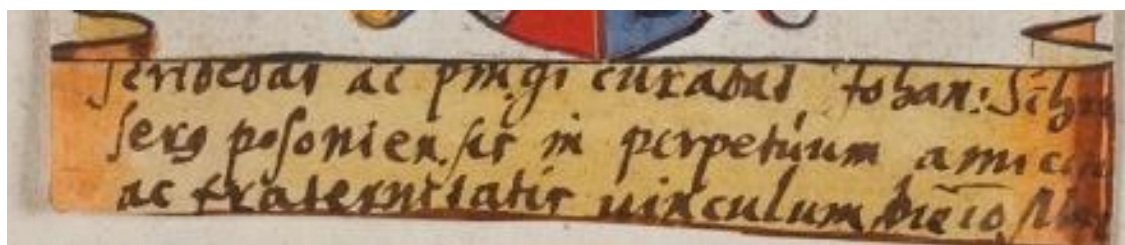 scribebat ac pingi curabat Johan: 
ser9 posoniensis in perpetuum
ac fraternitatis vinculum